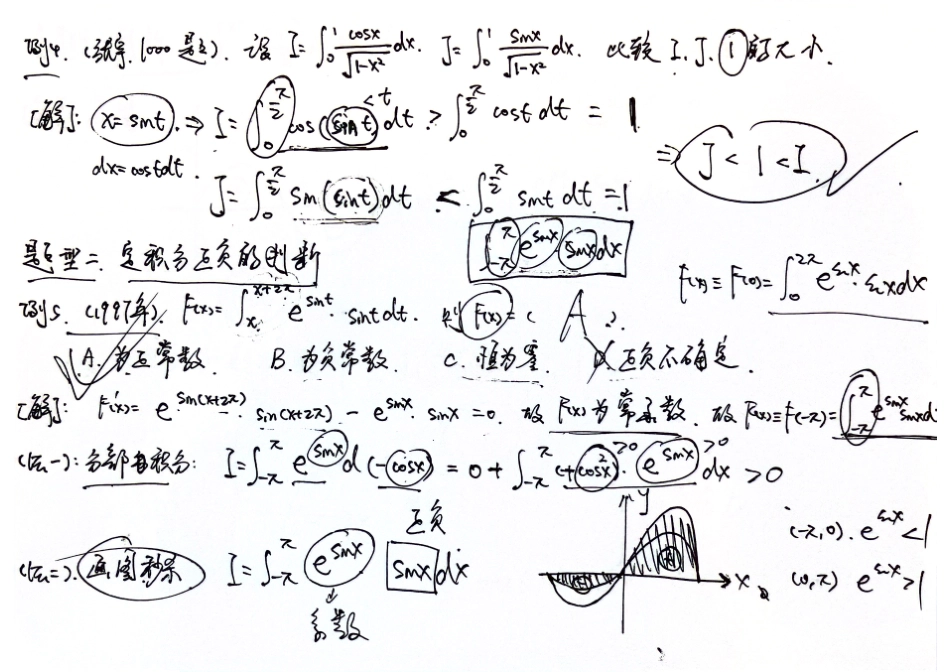 例4. (张宇. 1000题). 设 I=∫₀¹ cosx/√(1-x²) dx. J=∫₀¹ sinx/√(1-x²) dx. 比较 I. J. 1 的大小.
[解]: x=sint. ⇒ I=∫₀^{π/2} cos(sint)dt > ∫₀^{π/2} cost dt = 1
<t
dx=costdt.
J=∫₀^{π/2} sin(sint)dt < ∫₀^{π/2} sint dt = 1
⇒ J<1<I.
题型二. 定积分正负的判断
∫_{-π}^{π} e^{sinx} sinxdx
F(x)≡F(0)=∫₀^{2π} e^{sinx}·sinxdx
例5. (1997年). F(x)=∫ₓ^{x+2π} e^{sint}·sintdt. 则F(x)=( A ).
A. 为正常数. B. 为负常数. C. 恒为零. D. 正负不确定.
[解]: F'(x)= e^{sin(x+2π)}·sin(x+2π) - e^{sinx}·sinx =0. 故 F(x)为常函数. 故 F(x)≡F(-π)=∫_{-π}^{π} e^{sinx} sinxd
(法一): 分部积分: I=∫_{-π}^{π} e^{sinx}d(-cosx) = 0+∫_{-π}^{π} (+cos²x)·e^{sinx}dx >0
>0 >0
正负
(法二). 画图秒杀 I=∫_{-π}^{π} e^{sinx} sinx dx
系数
y
x
(-π,0). e^{sinx}<1
(0,π) e^{sinx}>1